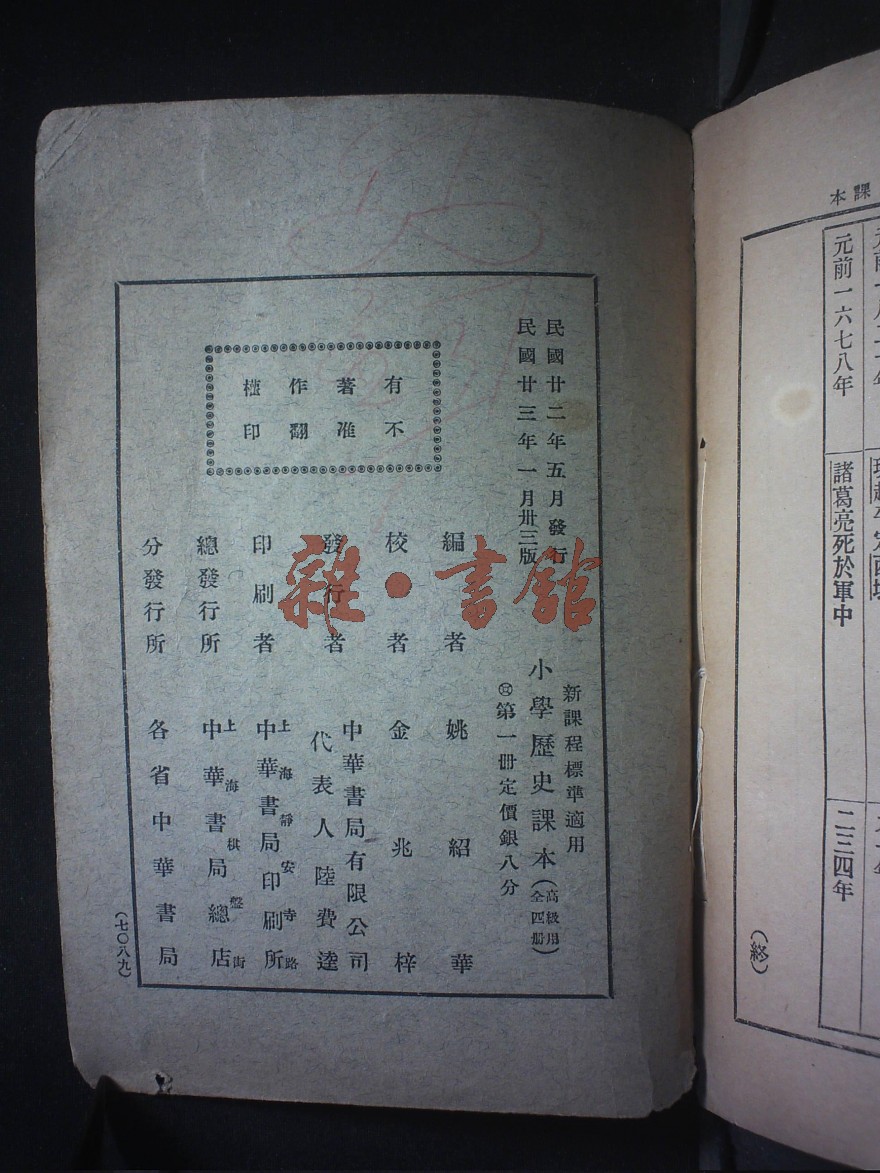 課本
元前一六七八年
諸葛亮死於軍中
二三四年
(終)
民國廿二年五月發行
民國廿三年一月卅三版
有著作權
不准翻印
新課程標準適用
小學歷史課本(高級用全四冊)
第一冊定價銀八分
編者 姚紹華
校者 金兆梓
發行者 中華書局有限公司
代表人陸費逵
印刷者 上海靜安寺路
中華書局印刷所
總發行所 上海棋盤街
中華書局總店
分發行所 各省中華書局
(七〇八九)
雜·書館